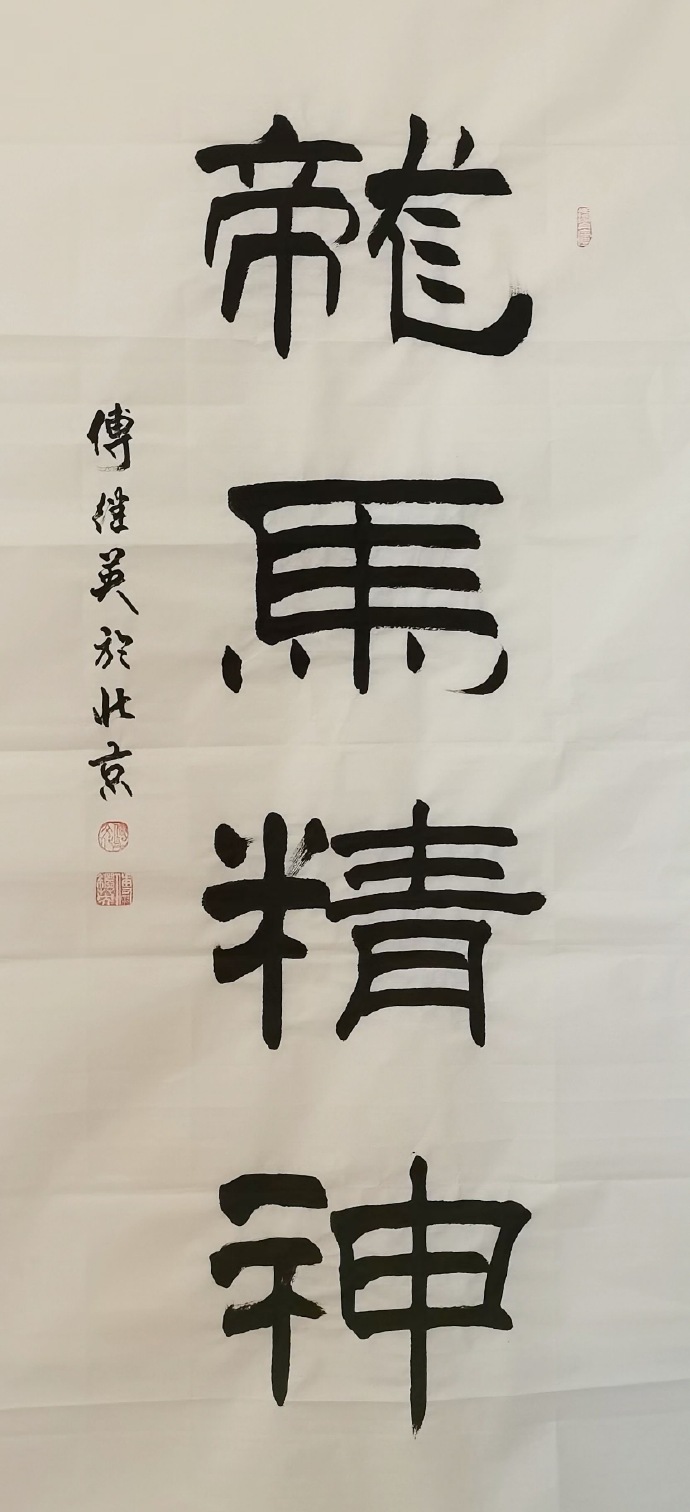 龍馬精神
傅继英於北京